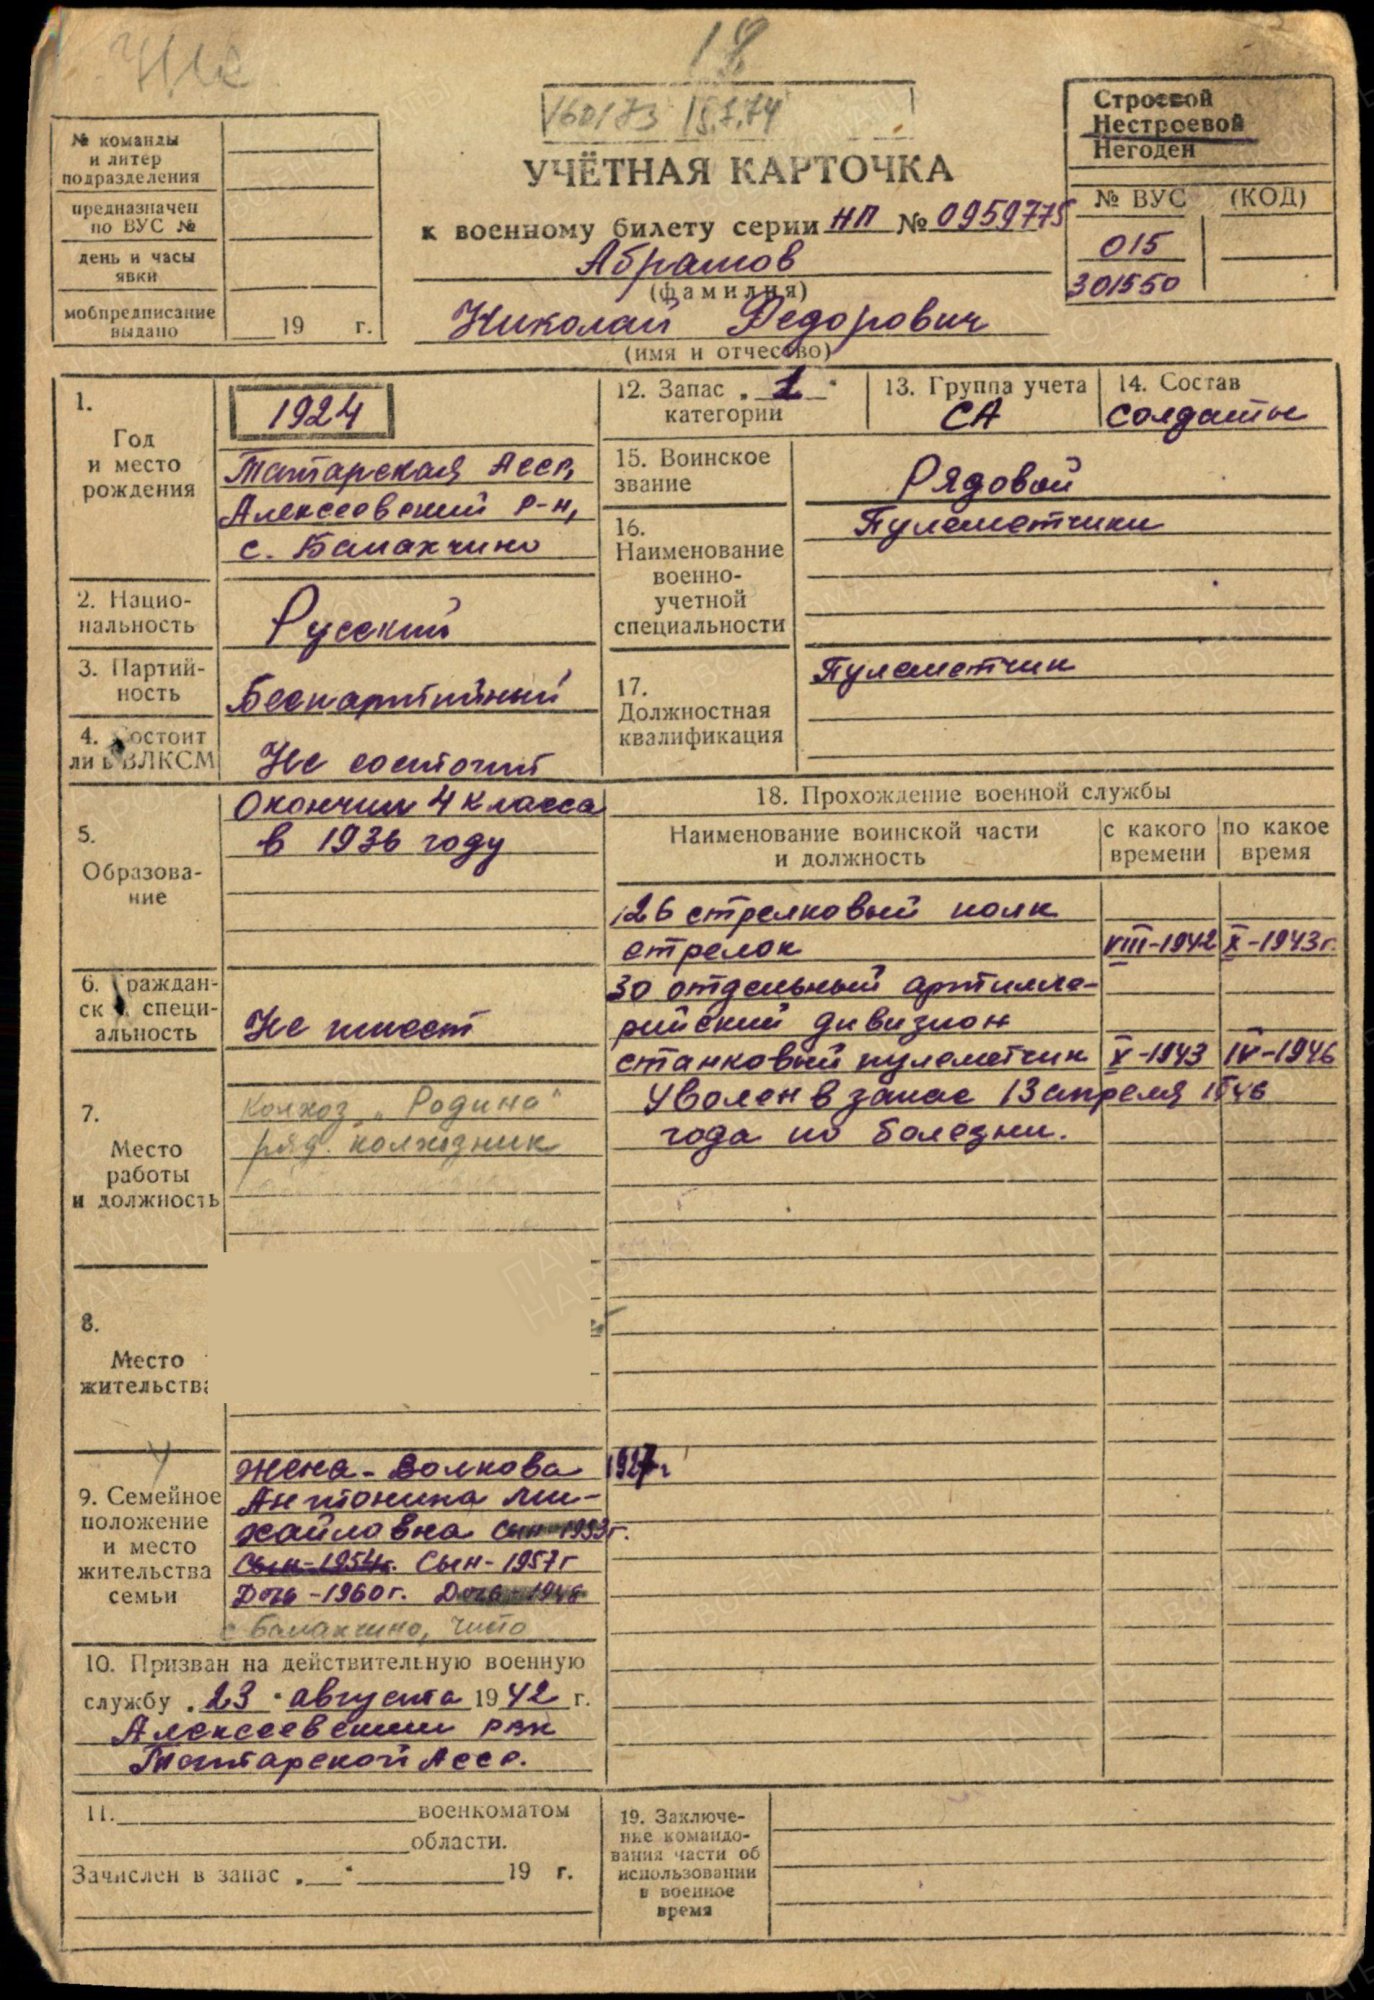 18
V60173 15.7.74
№ команды
и литер
подразделения
предназначен
по ВУС №
день и часы
явки
мобпредписание
выдано
19 г.
УЧЁТНАЯ КАРТОЧКА
к военному билету серии НП № 0959775
Абрамов
(фамилия)
Николай Федорович
(имя и отчество)
Строевой
Нестроевой
Негоден
№ ВУС (КОД)
015
301550
1.
Год
и место
рождения
1924
Татарская Асср,
Алексеевский р-н,
с. Балахчино
2. Нацио-
нальность
Русский
3. Партий-
ность
Беспартийный
4. Состоит
ли в ВЛКСМ
Не состоит
5.
Образова-
ние
Окончил 4 класса
в 1936 году
6. Граждан-
ск специ-
альность
Не имеет
7.
Место
работы
и должность
Колхоз „Родина"
ряд. колхозник
8.
Место
жительства
9. Семейное
положение
и место
жительства
семьи
Жена - Волкова 1927 г
Антонина Ми-
хайловна Сын 1953г.
Сын - 1954г. Сын - 1957г
Дочь - 1960г. Дочь - 1948
с Балахчино, Чисто
10. Призван на действительную военную
службу „23" августа 1942 г.
Алексеевским рвк
Татарской Асср.
11. военкоматом
области.
Зачислен в запас „ " 19 г.
12. Запас „1"
категории
13. Группа учета
СА
14. Состав
солдаты
15. Воинское
звание
Рядовой
16.
Наименование
военно-
учетной
специальности
Пулеметчики
17.
Должностная
квалификация
Пулеметчик
18. Прохождение военной службы
Наименование воинской части
и должность
с какого
времени
по какое
время
126 стрелковый полк
стрелок VIII-1942 X-1943г.
30 отдельный артилле-
рийский дивизион
станковый пулеметчик X-1943 IV-1946
Уволен в запас 13 апреля 1946
года по болезни.
19. Заключе-
ние командо-
вания части об
использовании
в военное
время